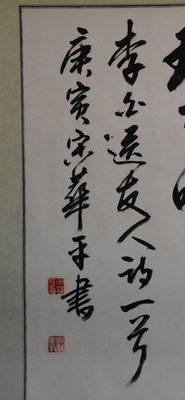 李白送友人詩一首
庚寅宋華平書